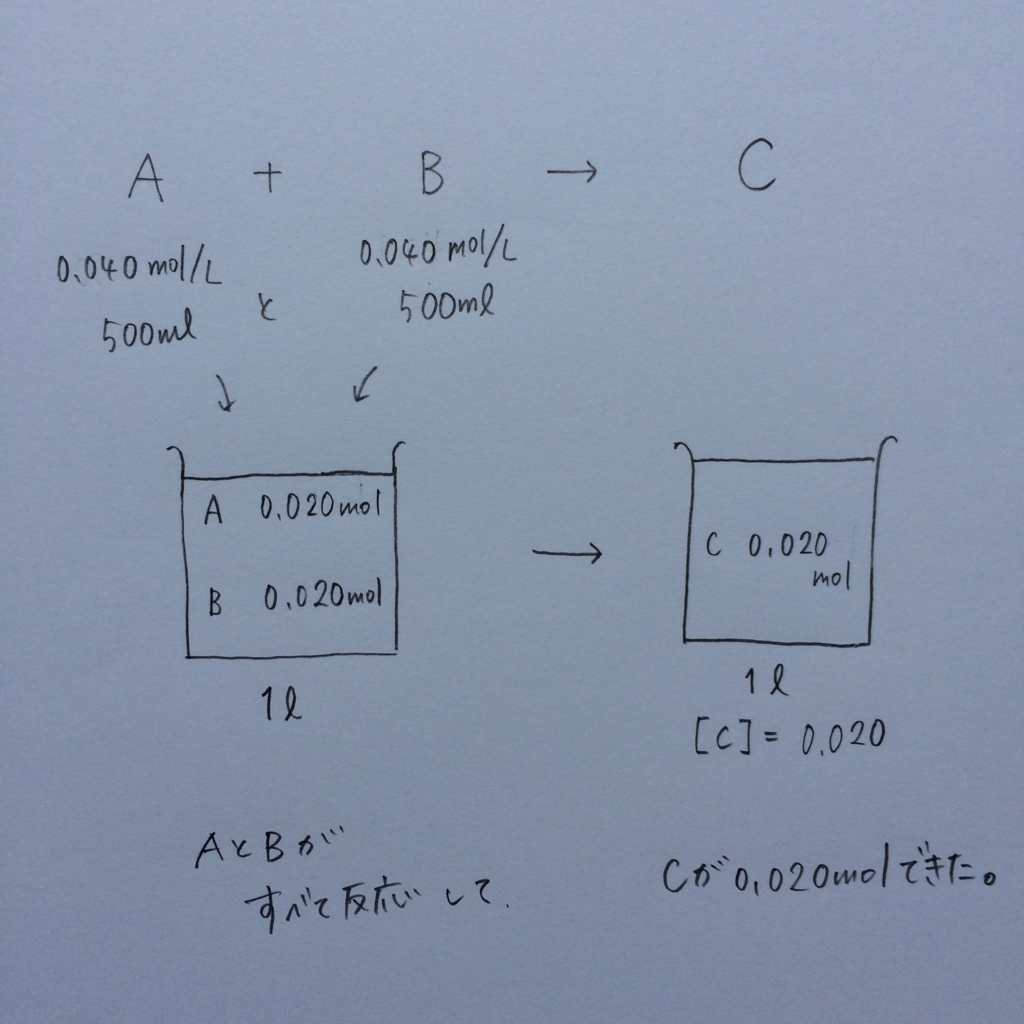 A + B → C
0.040 mol/L
500ml
と
0.040 mol/L
500ml
↓ ↙
A 0.020mol
B 0.020mol
1ℓ
→
C 0.020
mol
1ℓ
[C] = 0.020
AとBが
すべて反応して.
Cが0.020molできた。